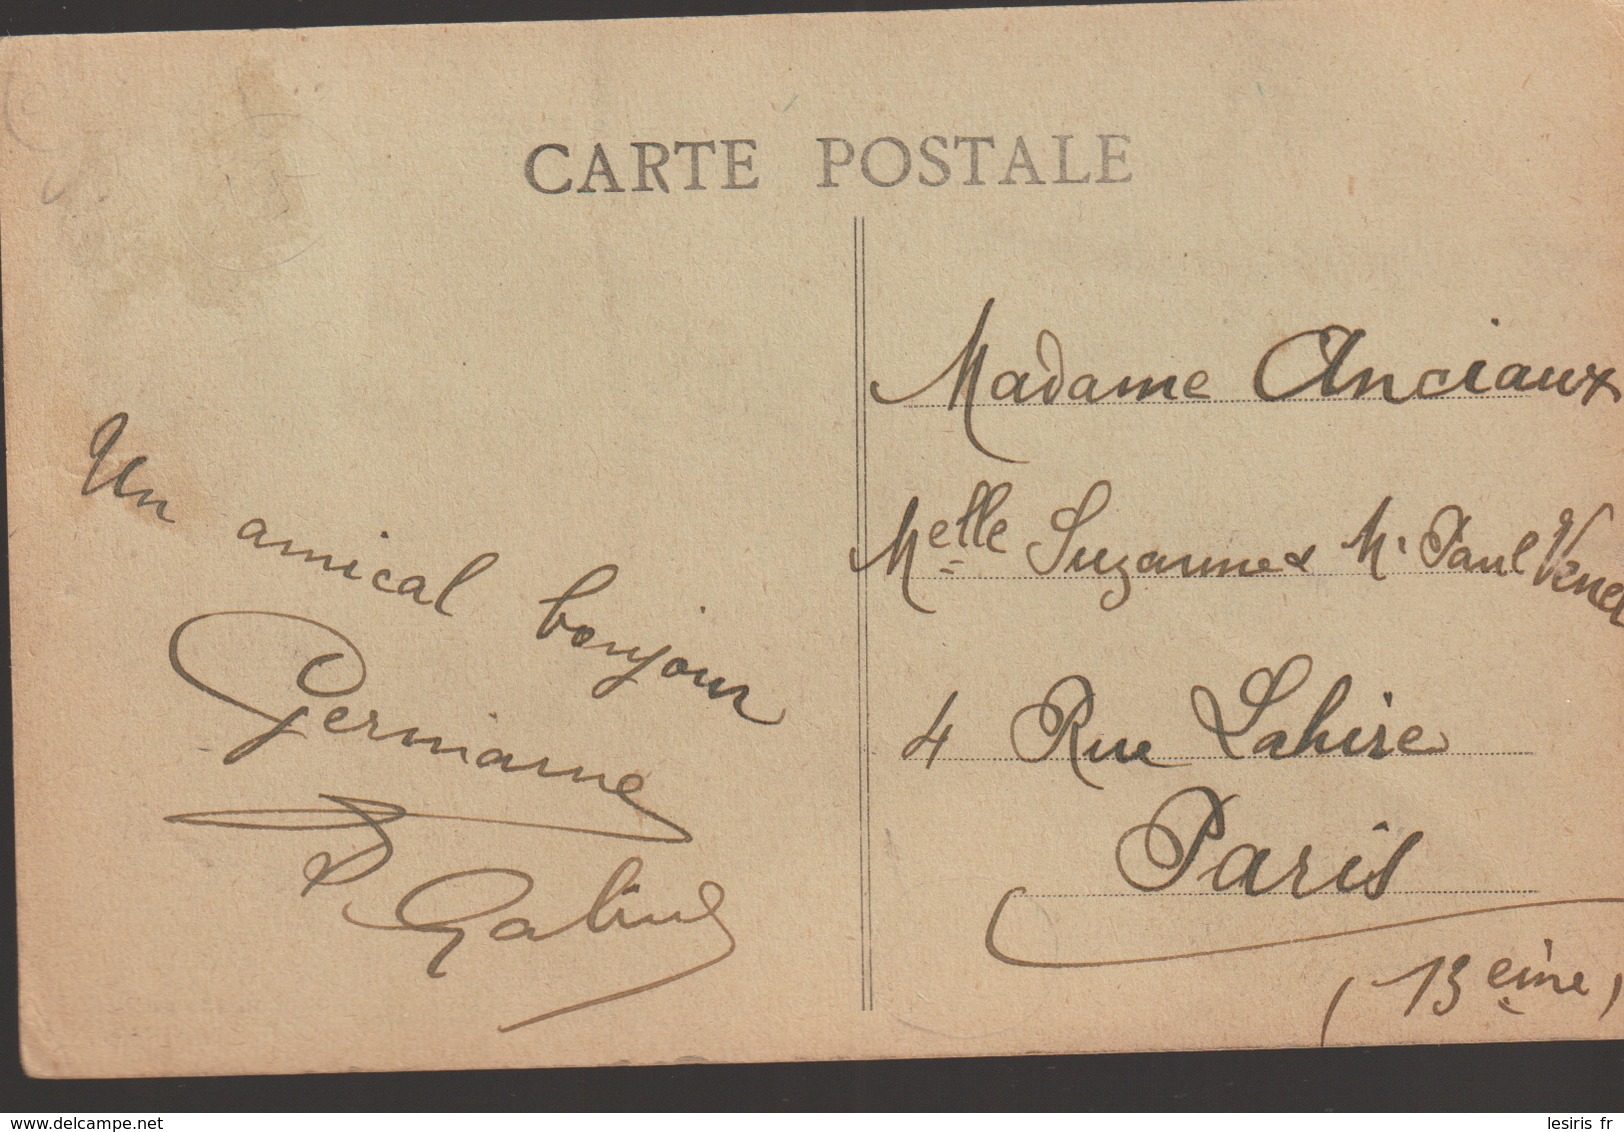 CARTE POSTALE
Un amical bonjour
Germaine
Madame Anciaux
Melle Suzanne & Mr Paul
4 Rue Lahire
Paris
(13 eme)
www.delcampe.net
lesiris fr